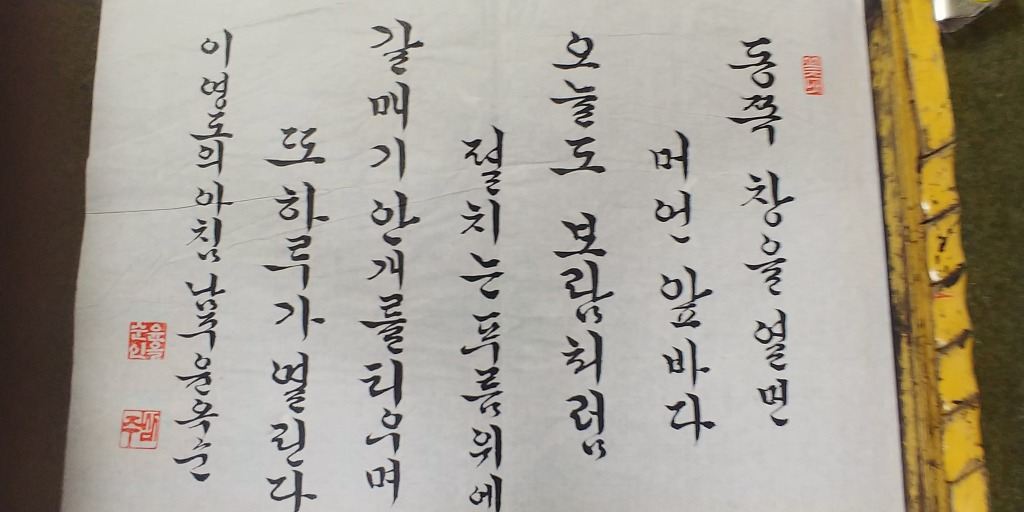 동쪽 창을 열면
머언 앞바다
오늘도 보람처럼
펼치는 푸름 위에
갈매기 안개를 티우며
또 하루가 열린다
이영도의 아침 남주 윤옥순